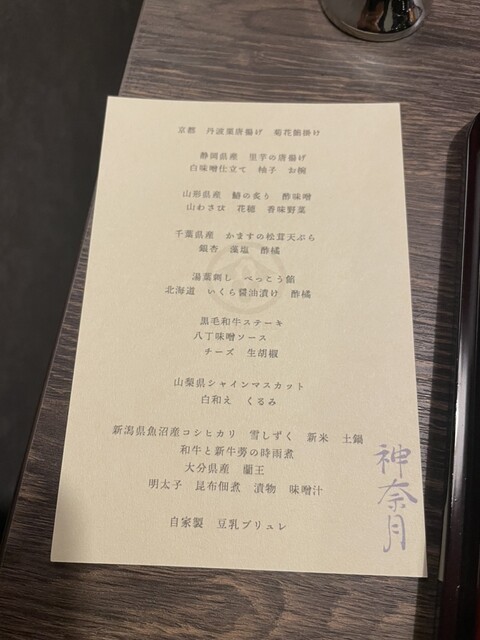 京都　丹波栗唐揚げ　菊花餡掛け
静岡県産　里芋の唐揚げ
白味噌仕立て　柚子　お椀
山形県産　鰆の炙り　酢味噌
山わさび　花穂　香味野菜
千葉県産　かますの松茸天ぷら
銀杏　藻塩　酢橘
湯葉刺し　べっこう餡
北海道　いくら醤油漬け　酢橘
黒毛和牛ステーキ
八丁味噌ソース
チーズ　生胡椒
山梨県シャインマスカット
白和え　くるみ
新潟県魚沼産コシヒカリ　雪しずく　新米　土鍋
和牛と新牛蒡の時雨煮
大分県産　蘭王
明太子　昆布佃煮　漬物　味噌汁
自家製　豆乳ブリュレ
神奈月